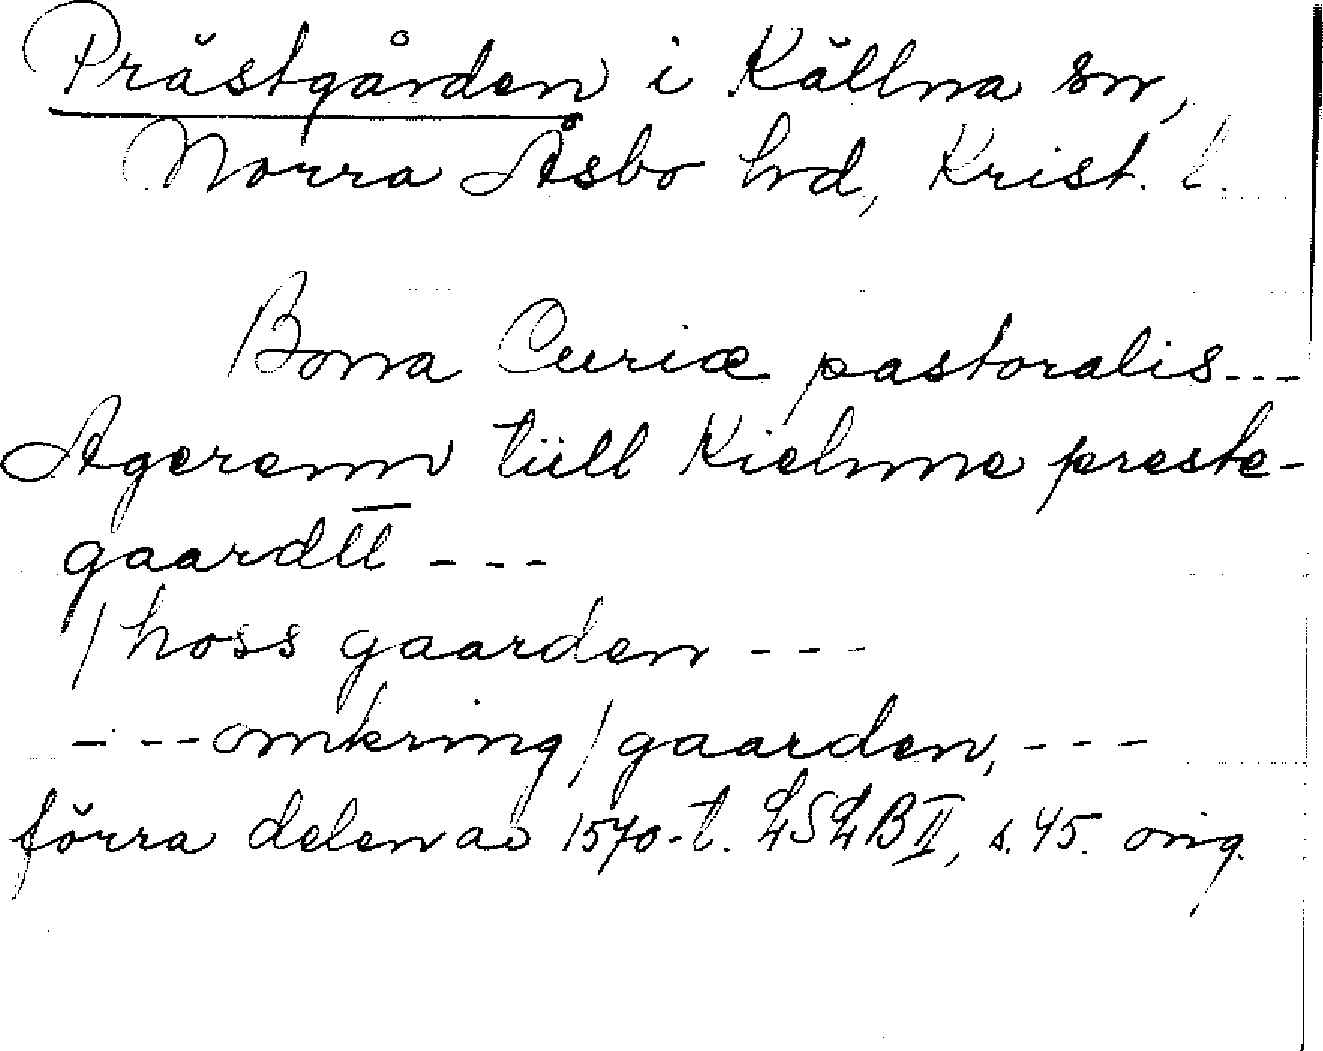 Prästgården i Källna sn,
Norra Åsbo hrd, Krist. l.
Bona Curiæ pastoralis---
Agerenn tüll Kielnne preste-
gaardtt ---
/ hoss gaarden ---
---omkring / gaarden, ---
förra delen av 1570-t. LSLB II, s. 45. orig.